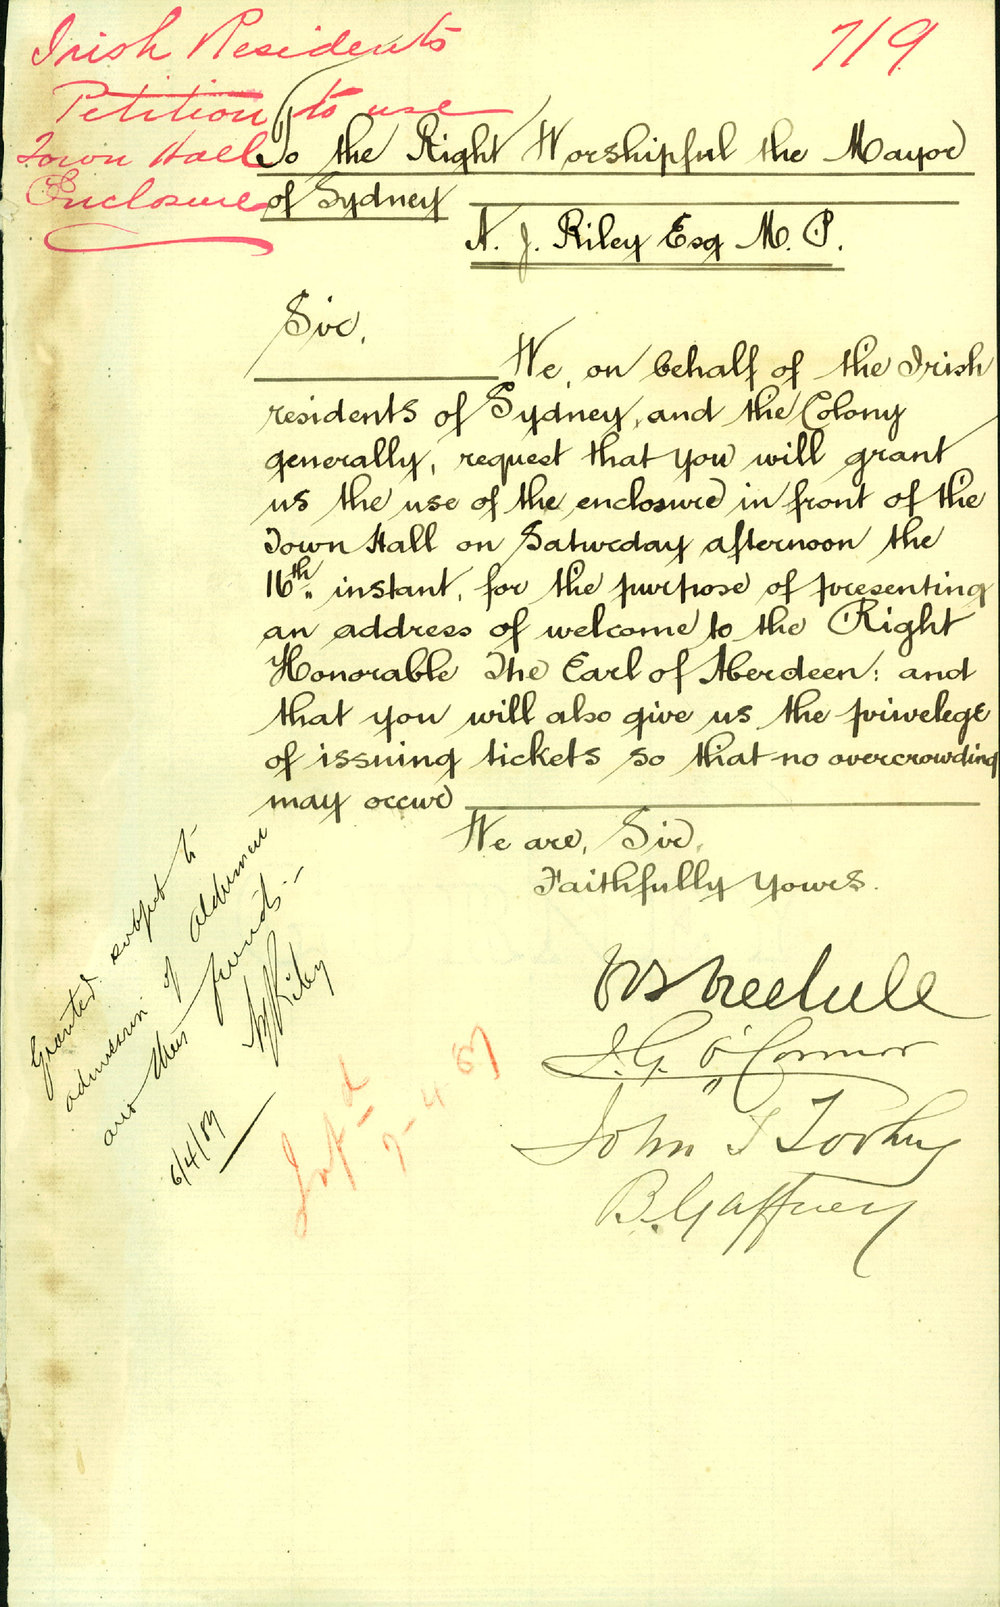 Irish Residents
Petition to use
Town Hall
Enclosure
719
To the Right Worshipful the Mayor
of Sydney
A. J. Riley Esq M. P.
Sir,
We, on behalf of the Irish
residents of Sydney, and the Colony
generally, request that you will grant
us the use of the enclosure in front of the
Town Hall on Saturday afternoon the
16th. instant, for the purpose of presenting
an address of welcome to the Right
Honorable The Earl of Aberdeen: and
that you will also give us the privelege
of issuing tickets so that no overcrowding
may occur
We are, Sir,
Faithfully Yours.
J. G. O'Connor
John T Toohey
B. Gaffney
Granted subject to
admission of Aldermen
and their friends.—
AJRiley
6/4/87
Inf'd
7-4-87